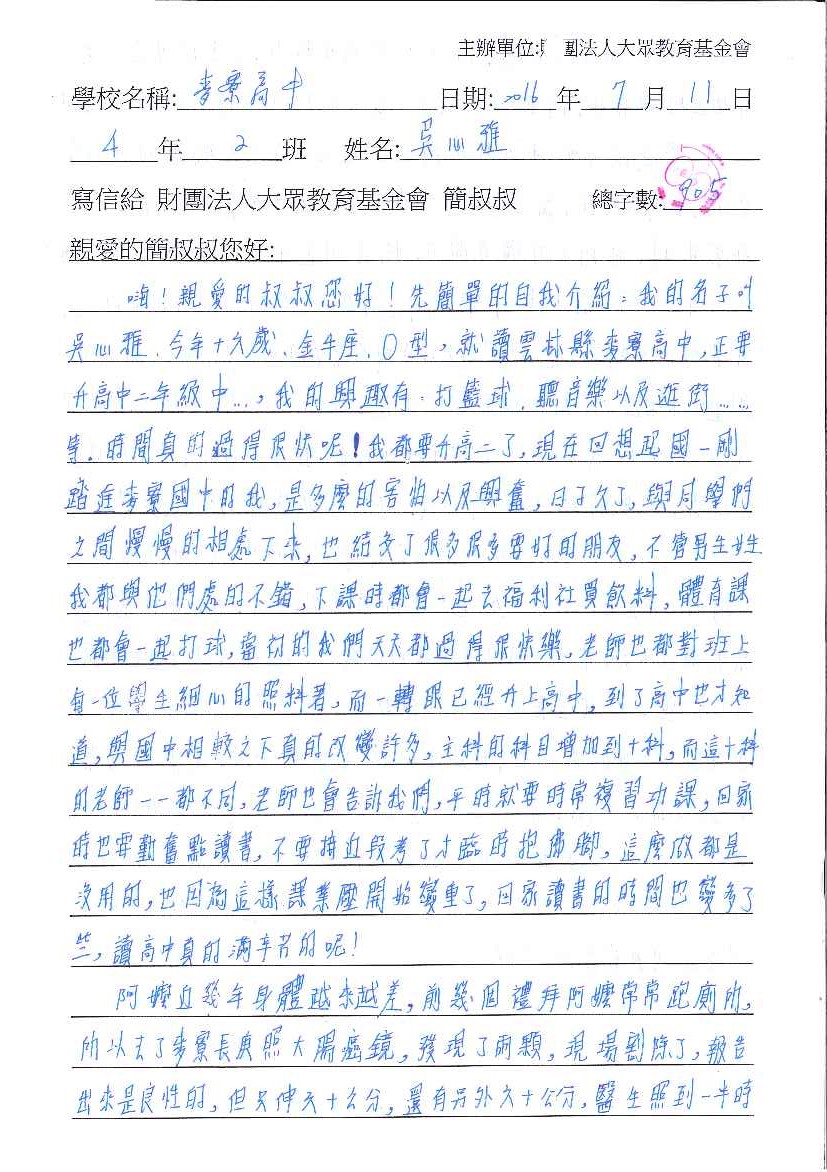 主辦單位:財團法人大眾教育基金會
學校名稱: 麥寮高中 日期: 2016 年 7 月 11 日
4 年 2 班 姓名: 吳心雅
寫信給 財團法人大眾教育基金會 簡叔叔 總字數: 905
親愛的簡叔叔您好:
嗨!親愛的叔叔您好!先簡單的自我介紹:我的名子叫
吳心雅、今年十六歲、金牛座、O型,就讀雲林縣麥寮高中,正要
升高中二年級中...,我的興趣有:打籃球、聽音樂以及逛街......
等。時間真的過得很快呢!我都要升高二了,現在回想起國一剛
踏進麥寮國中的我,是多麼的害怕以及興奮,日子久了,與同學們
之間慢慢的相處下來,也結交了很多很多要好的朋友,不管男生女生
我都與他們處的不錯,下課時都會一起去福利社買飲料,體育課
也都會一起打球,當初的我們天天都過得很快樂,老師也都對班上
每一位學生細心的照料著,而一轉眼已經升上高中,到了高中也才知
道,與國中相較之下真的改變許多,主科的科目增加到十科,而這十科
的老師一一都不同,老師也會告訴我們,平時就要時常複習功課,回家
時也要勤奮點讀書,不要接近段考了才臨時抱佛腳,這麼做都是
沒用的,也因為這樣課業壓開始變重了,回家讀書的時間也變多了
些,讀高中真的滿辛苦的呢!
阿嬤近幾年身體越來越差,前幾個禮拜阿嬤常常跑廁所,
所以去了麥寮長庚照大腸癌鏡,發現了兩顆,現場割除了,報告
出來是良性的,但只伸六十公分,還有另外六十公分,醫生照到一半時